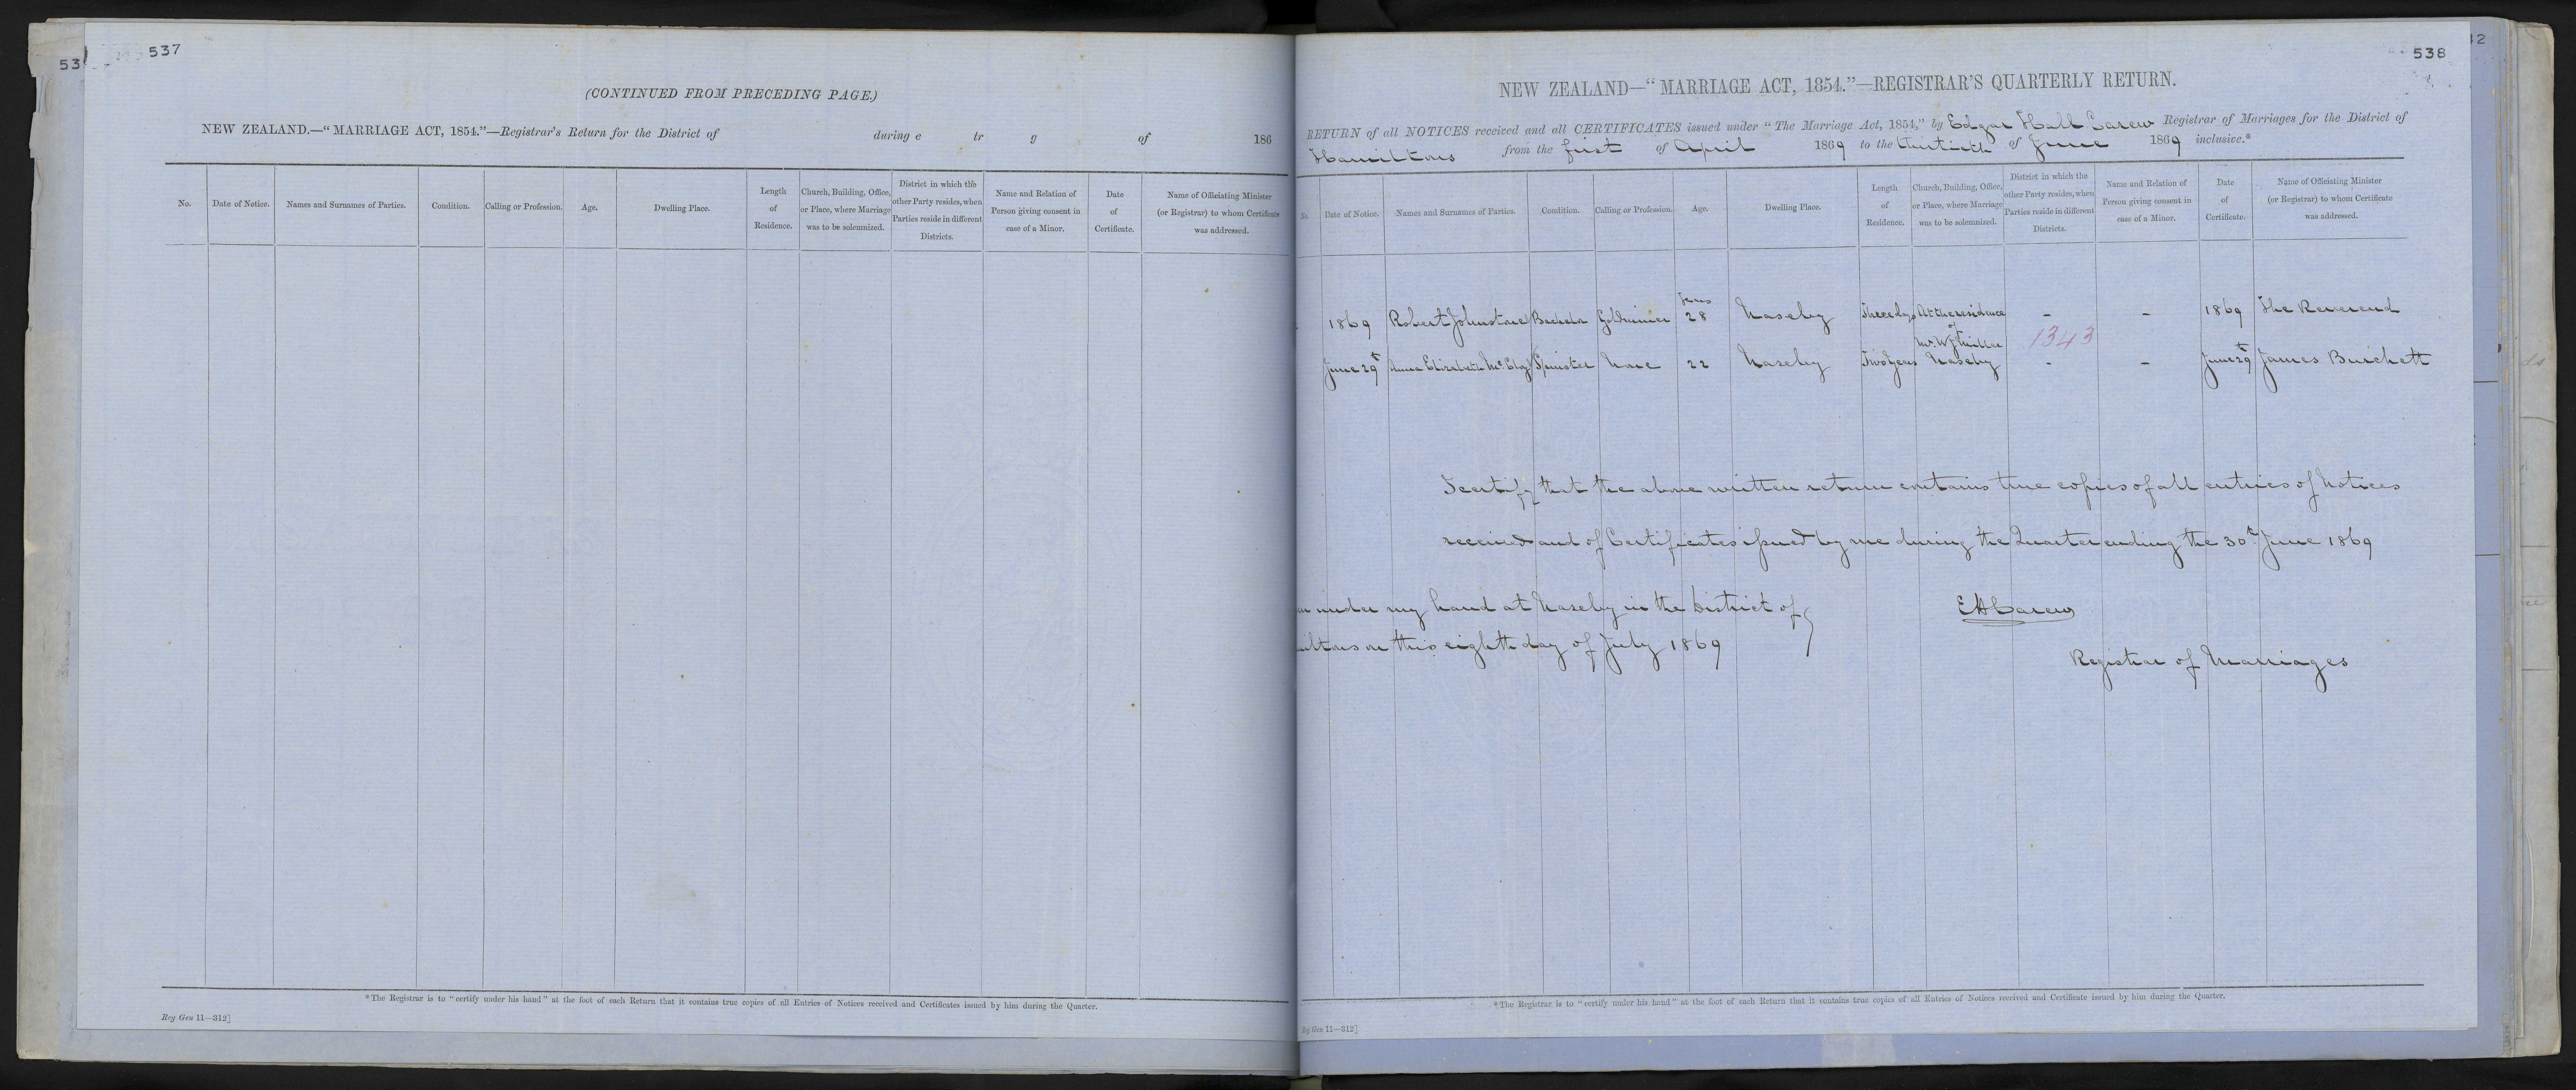 537
53
(CONTINUED FROM PRECEDING PAGE.)
NEW ZEALAND.—“MARRIAGE ACT, 1854.”—Registrar's Return for the District of during e tr g of 186
No. Date of Notice. Names and Surnames of Parties. Condition. Calling or Profession. Age. Dwelling Place. Length of Residence. Church, Building, Office, or Place, where Marriage was to be solemnized. District in which the other Party resides, when Parties reside in different Districts. Name and Relation of Person giving consent in case of a Minor. Date of Certificate. Name of Officiating Minister (or Registrar) to whom Certificate was addressed.
*The Registrar is to “certify under his hand” at the foot of each Return that it contains true copies of all Entries of Notices received and Certificates issued by him during the Quarter.
Reg Gen 11—312]
538
42
NEW ZEALAND—“MARRIAGE ACT, 1854.”—REGISTRAR'S QUARTERLY RETURN.
RETURN of all NOTICES received and all CERTIFICATES issued under “The Marriage Act, 1854,” by Edgar Hall Carew Registrar of Marriages for the District of
Hamiltons from the first of April 1869 to the thirtieth of June 1869 inclusive.*
No. Date of Notice. Names and Surnames of Parties. Condition. Calling or Profession. Age. Dwelling Place. Length of Residence. Church, Building, Office, or Place, where Marriage was to be solemnized. District in which the other Party resides, when Parties reside in different Districts. Name and Relation of Person giving consent in case of a Minor. Date of Certificate. Name of Officiating Minister (or Registrar) to whom Certificate was addressed.
1869 Robert Johnstone Bachelor Goldminer Years 28 Naseby Three days At the residence - - 1869 The Reverend
of
Mr. W. 1343
June 29th Anna Elizabeth Spinster None 22 Naseby Two Years Naseby - - June 29th James Burchett
I certify that the above written return contains true copies of all entries of Notices
received and of Certificates issued by me during the Quarter ending the 30th June 1869
under my hand at Naseby in the District of
iltons on this eighth day of July 1869
E H Carew
Registrar of Marriages
*The Registrar is to “certify under his hand” at the foot of each Return that it contains true copies of all Entries of Notices received and Certificate issued by him during the Quarter.
Reg Gen 11—312]